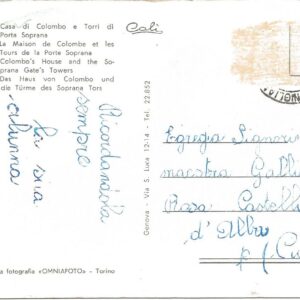 Casa di Colombo e Torri di
Porta Soprana
La Maison de Colombe et les
Tours de la Porte Soprana
Colombo's House and the So-
prana Gate's Towers
Das Haus von Colombo und
die Türme des Soprana Tors
Ricordandola
sempre
alunna
Genova - Via S. Luca 12-14 - Tel. 22.852
a fotografia «OMNIAFOTO» - Torino
Egregia Signori
maestra Galli
d' Alba